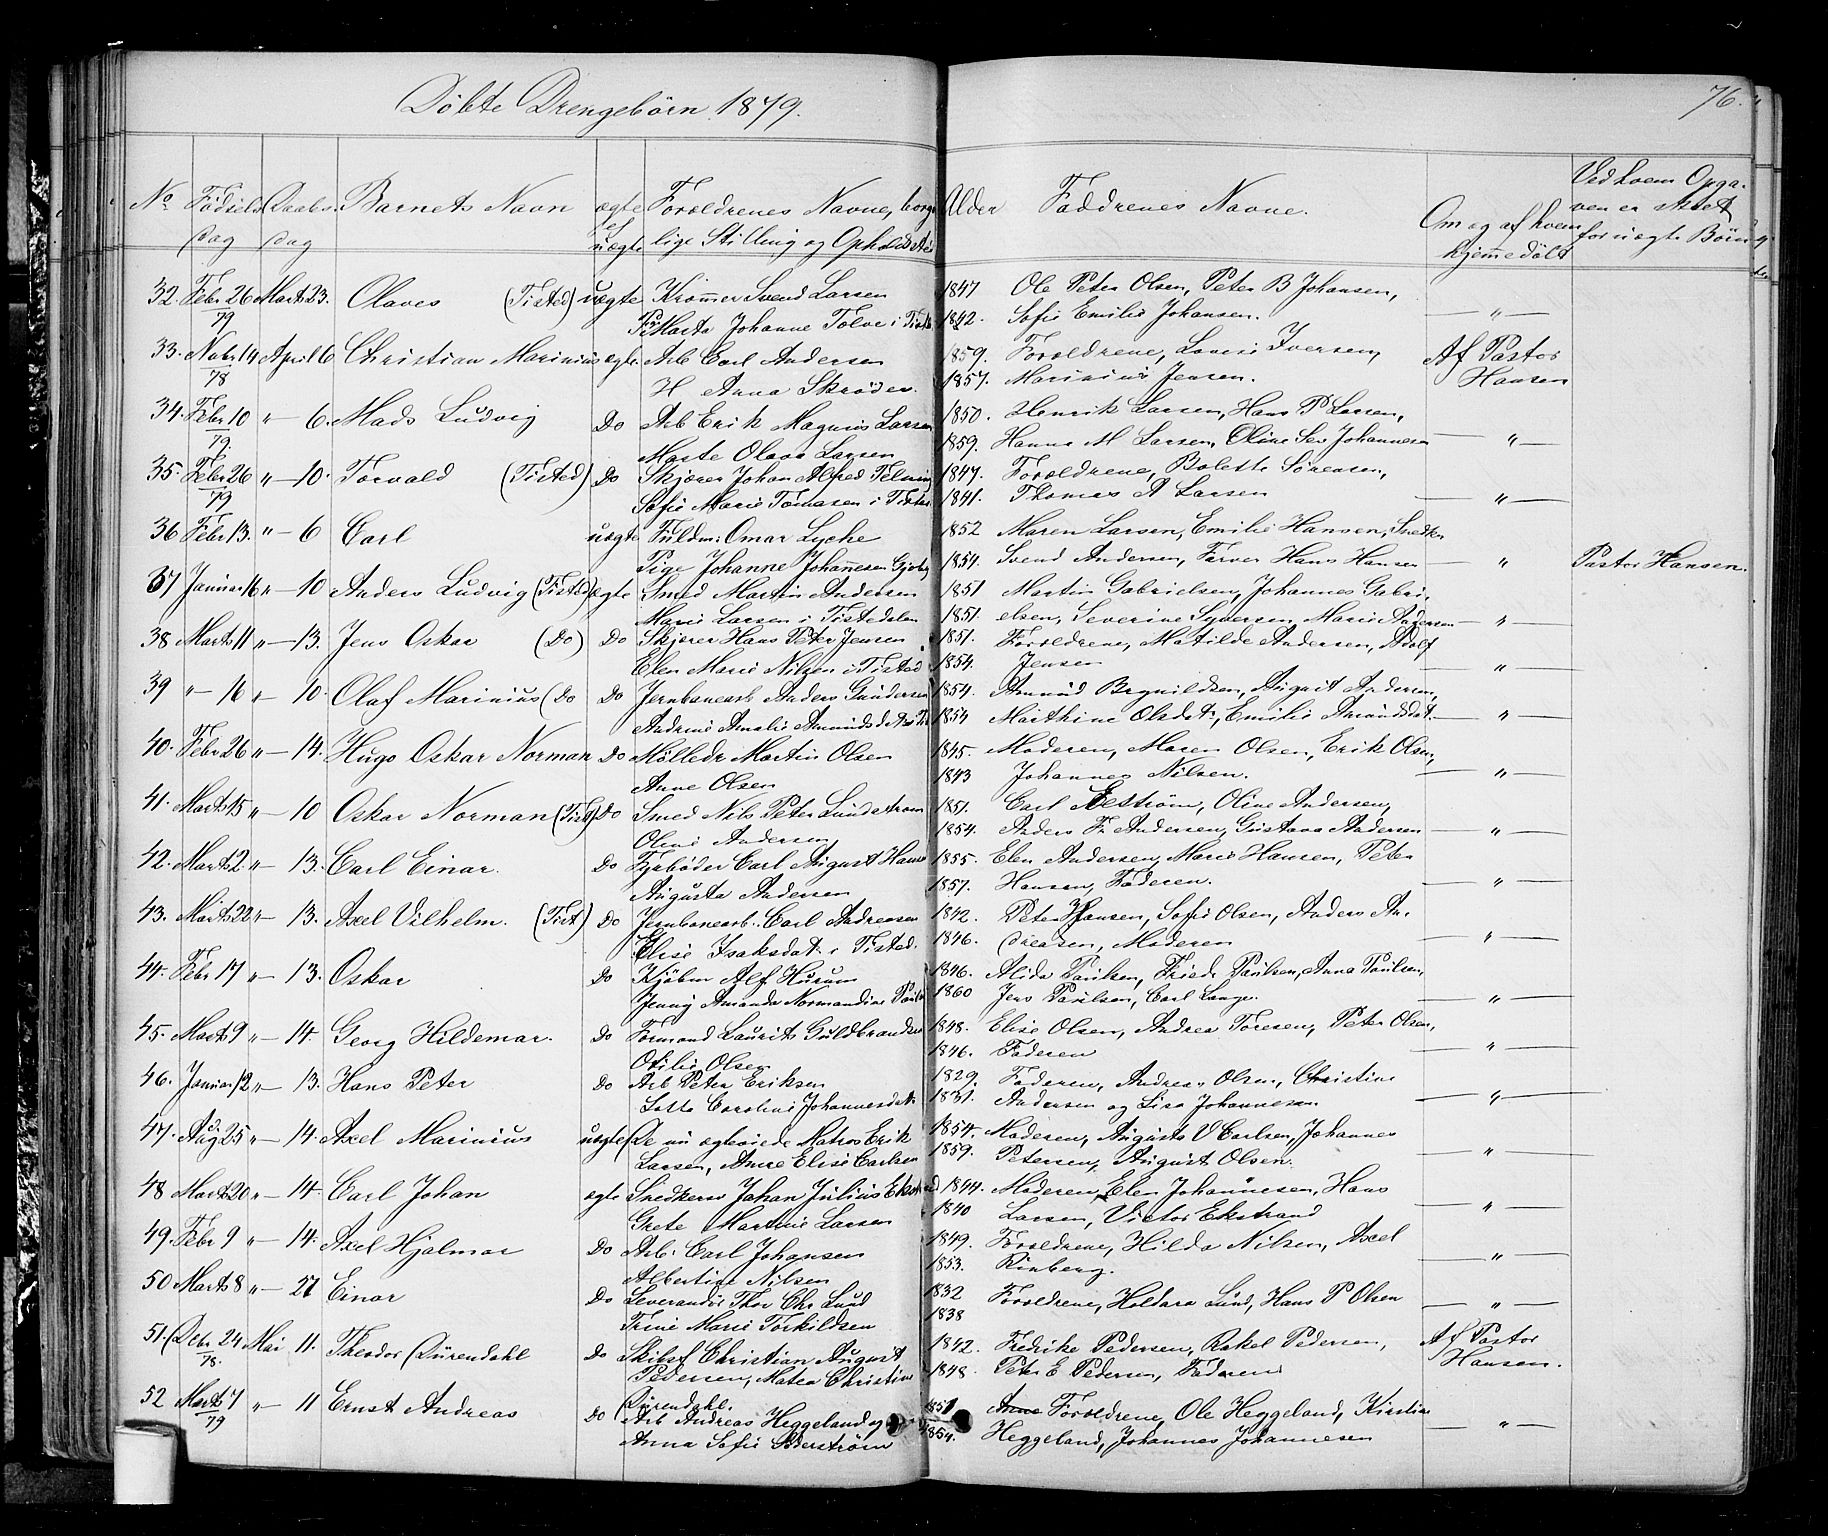 Döbte Drengebörn 1879.
76.
No Födsels dag Daabs dag Barnets Navn ægte el uægte Foreldrenes Navne, borgerlige Stilling og Opholdsted Alder Faddrenes Navne. Om og af hvem hjemmedöbt Ved hvem Opgaven er skeet for uægte Börn
32. Febr 26 Marts 23. Olaves (Tisted) uægte Kræmmer Svend Larsen 1847 Ole Peter Olsen, Peter B Johansen,
79 Pi Marta Johanne Tolve i Tisted 1842. Sofie Emilie Johansen. — " —
33. Nobr 19 April 6 Christian Marinius ægte Arb Carl Andersen 1859. Foreldrene, Lovise Iversen, Af Pastor
78 H Anna Skröder 1857. Marinius Jensen. Hansen
34. Febr 10 " — 6. Mads Ludvig Do Arb Erik Magnus Larsen 1850. Henrik Larsen, Hans P Larsen,
79. Marte Olava Larsen 1859. Hanna M Larsen, Oline Sev Johannesen — " —
35. Febr 26 " — 10. Torvald (Tisted) Do Skjærer Johan Alfred 1847. Foreldrene, Bolette Sörensen,
79 Sofie Marie Tomasen i Tisted 1841. Thomas A Larsen — " —
36 Febr 13. " — 6 Carl uægte Fuldm: Omar Lyche 1852 Maren Larsen, Emilie Hansen, Snedker
Pige Johanne Johannesen 1854. Svend Andersen, Farver Hans Hansen — " Pastor Hansen.
37 Januar 16 " — 10 Anders Ludvig (Tisted) ægte Smed Martin Andersen 1851 Martin Gabrielsen, Johannes Gabri-
Marie Larsen i Tistedalen 1851. elsen, Severine Syversen, Marie Andersen — " —
38 Marts 11 " — 13. Jens Oskar (Do) Do Skjærer Hans Peter Jensen 1851. Foreldrene, Matilde Andersen, Adolf
Elen Marie Nilsen i Tisted 1854. Jensen — " —
39 " — 16 " — 10. Olaf Marinius (Do Do Jernbanearb Anders Gundersen 1854. Amund Brynildsen, August Andersen,
Andrine Amalie Amundsdat 1854 Marthine Olsdat, Emilie Amundsdat — " —
40. Febr 26 " — 14. Hugo Oskar Norman Do Mölledr Martin Olsen 1845. Moderen, Maren Olsen, Erik Olsen,
Anne Olsen 1843 Johannes Nilsen. — " —
41. Marts 15 " — 10 Oskar Norman (Tist) Do Smed Nils Peter Lundström 1851. Carl Ekström, Oline Andersen,
Oline Andersen 1854. Anders Fr Andersen, Gustava Andersen — " —
42. Marts 2 " — 13. Carl Einar. Do Fyrböder Carl August Hansen 1855. Elen Andersen, Marie Hansen, Peter
Augusta Andersen 1857. Hansen, Faderen. — " —
43. Marts 22 " — 13. Axel Vilhelm. (Tist) Do Jernbanearb. Carl Andreasen 1842. Peter Hansen, Sofie Olsen, Anders An-
Elise Isaksdat i Tisted. 1846. dreasen, Moderen — " —
44. Febr 17 " — 13. Oskar Do Kjöbm Alf Husum 1846. Alida Paulsen, Frieda Paulsen, Anna Paulsen,
Jenny Amanda Normandine Paulsen 1860 Jens Paulsen, Carl Lange. — " —
45. Marts 9 " — 14. Georg Hildemar. Do Formand Laurits Guldbrandsen 1848. Elise Olsen, Andrea Toresen, Peter Olsen,
Otilie Olsen 1846. Faderen — " —
46. Januar 12 " — 13. Hans Peter Do Arb Peter Eriksen 1829. Faderen, Andreas Olsen, Christine
Lotte Caroline Johannesdat 1831. Andersen og Lisa Johannesen. — " —
47. Aug 25 " — 14. Axel Marinius uægte (De nu ægteviede Matros Erik 1854. Moderen, Augusta V Carlsen, Johannes
Larsen, Anne Elise Carlsen 1859. Petersen, August Olsen. — " —
48 Marts 20 " — 14. Carl Johan ægte Snedkersv Johan Julius Ekstrand 1844. Moderen, Elen Johannesen, Hans
Grete Martine Larsen 1840 Larsen, Victor Ekstrand — " —
49. Febr 9 " — 14. Axel Hjalmar Do Arb. Carl Johansen 1849. Foreldrene, Hilda Nilsen, Axel
Albertine Nilsen 1853. Rinberg. — " —
50 Marts 8 " — 27 Einar Do Leverandör Thor Chr Lund 1832 Foreldrene, Haldara Lund, Hans P Olsen
Trine Marie Torkildsen 1838 — " —
51. Debr 24 Mai 11. Theodor Dürendahl Do Skibsf Christian August 1842. Fredrikke Pedersen, Rakel Pedersen, Af Pastor
78. Pedersen, Matea Christine 1848. Peter E Pedersen, Faderen Hansen.
Dürendahl.
52 Marts 7 " — 11 Ernst Andreas Do Arb Andreas Heggeland og 1851 Anne Foreldrene, Ole Heggeland, Kirstine
79 Anna Sofie Söderström 1854. Heggeland, Johannes Johannesen — " —